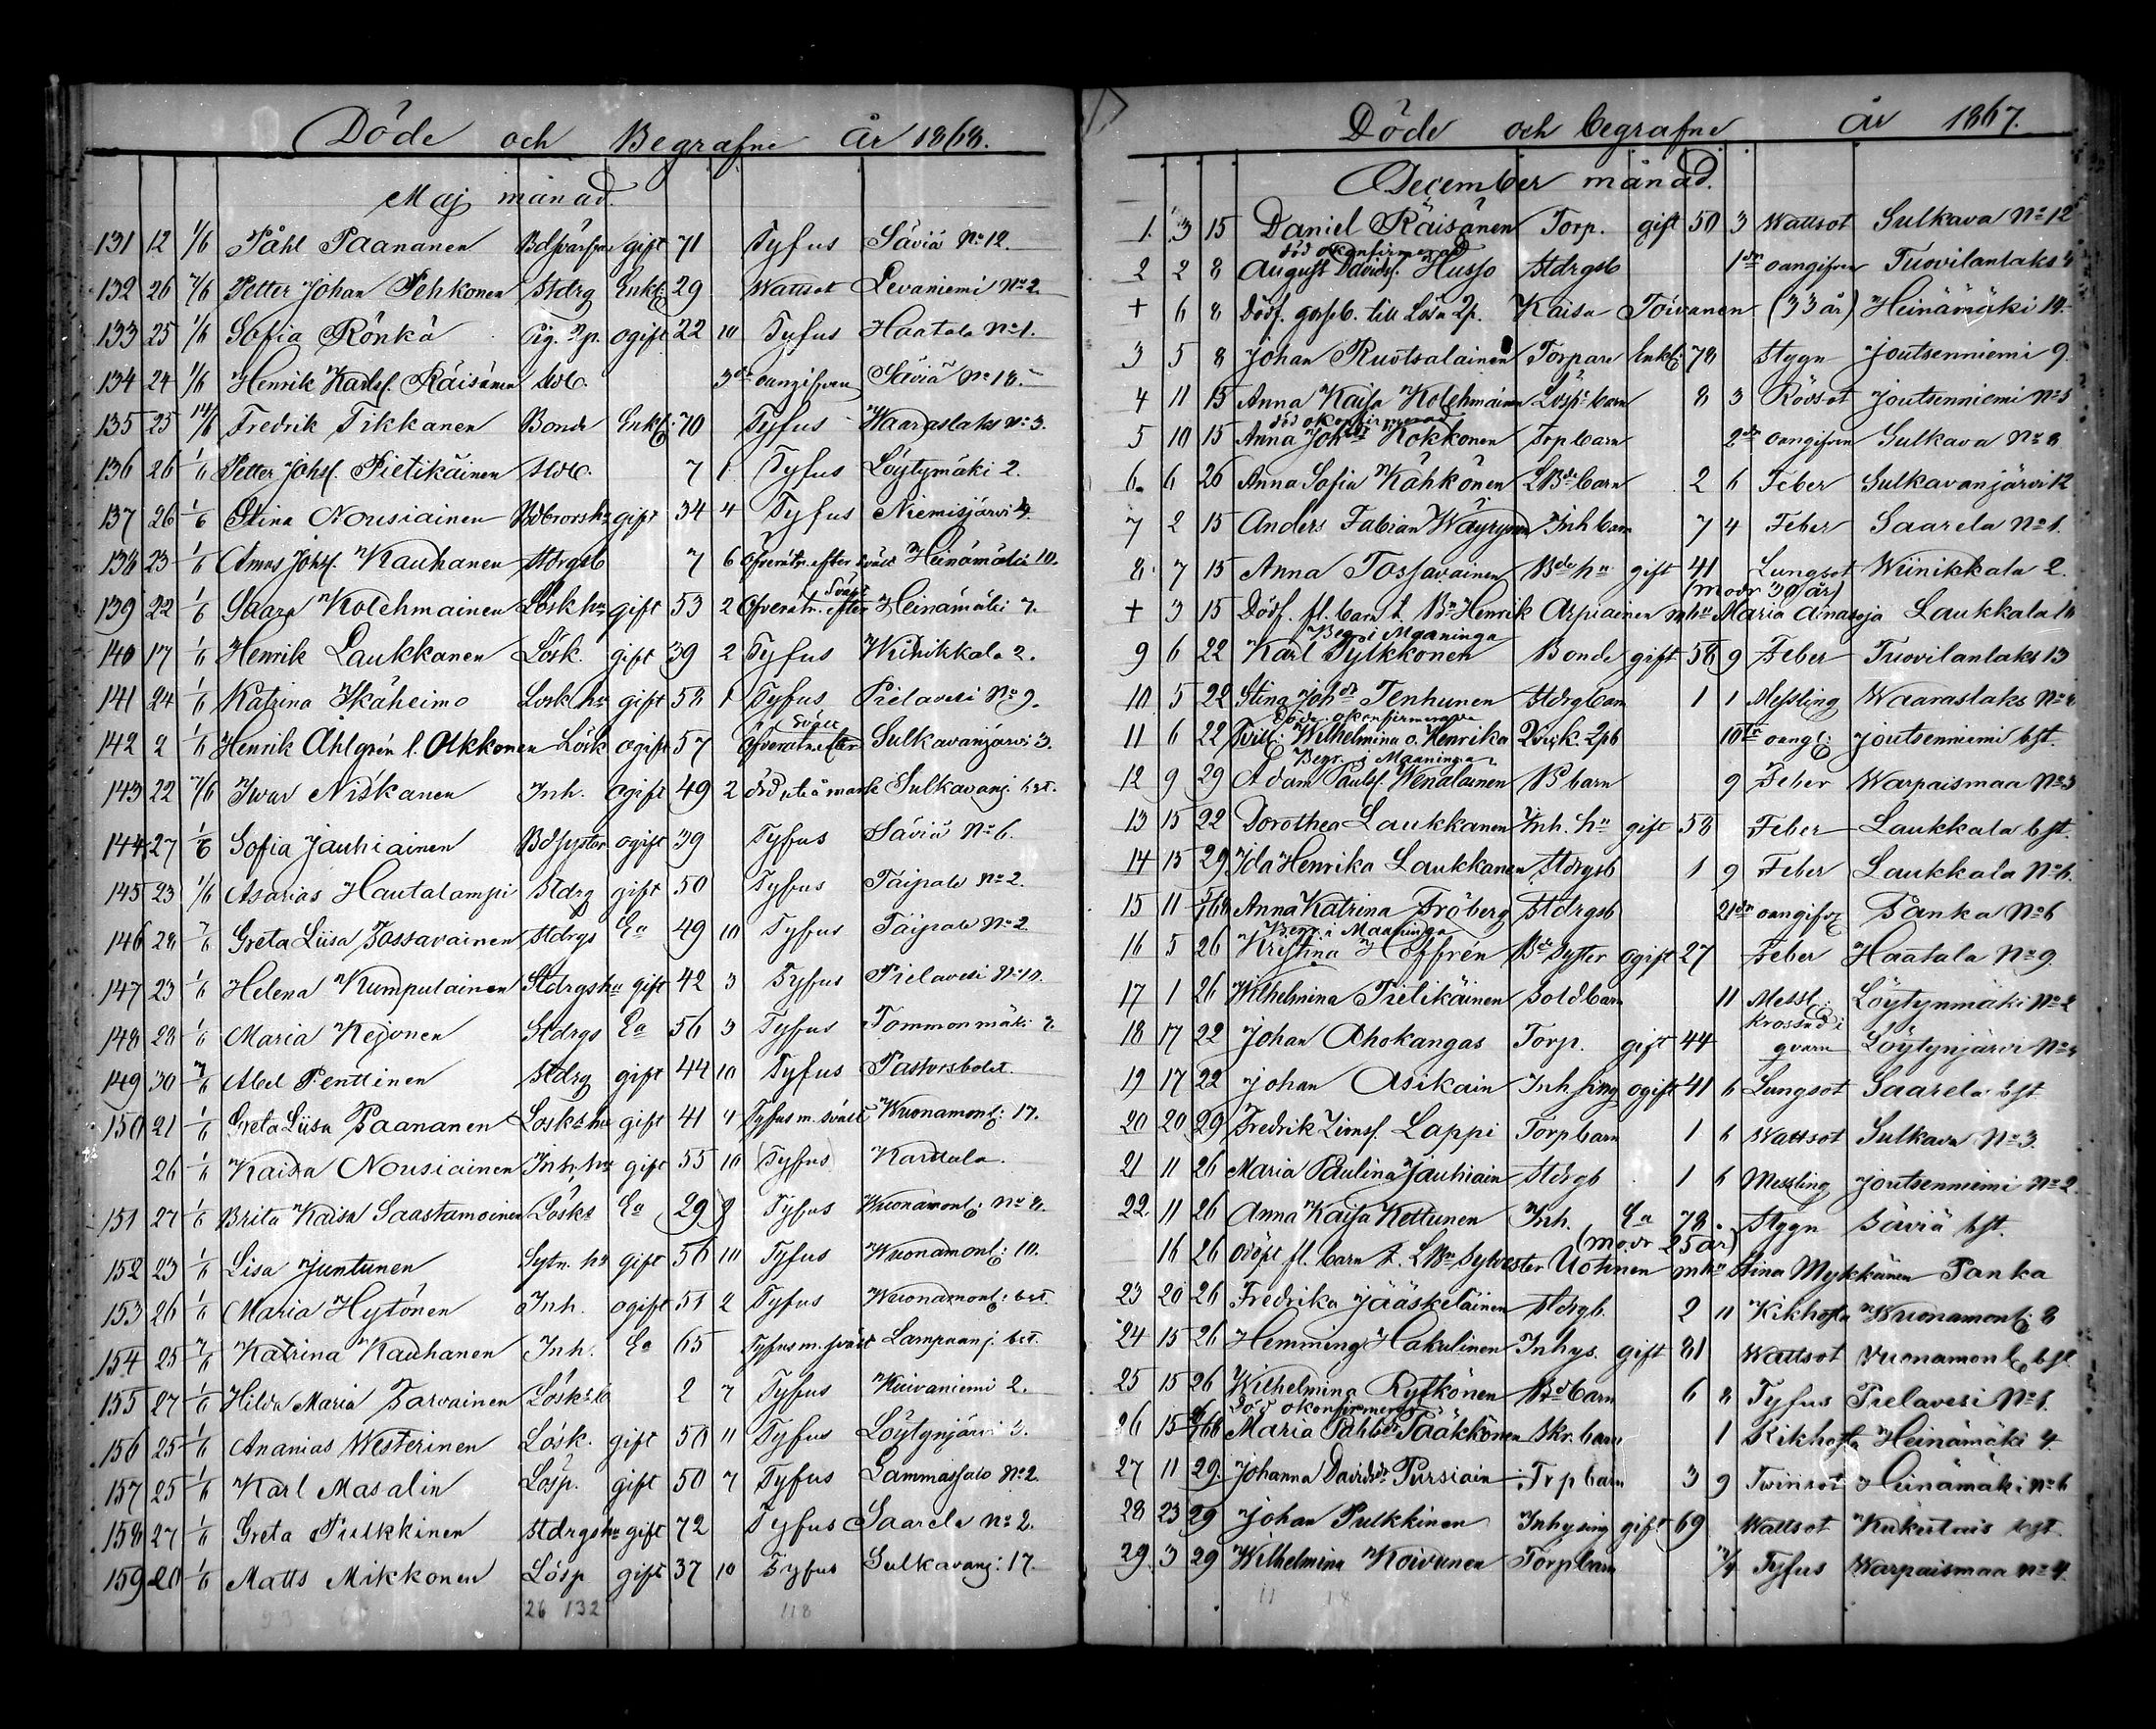 Döde och Begrafne År 1868.
Maj månad.
131 12 1/6 Påhl Paananen gift 71 Tyfus Säviä No 12.
132 26 7/6 Petter Johan Pehkonen Stdrg Enkl: 29 Wattsot Levaniemi No 2.
133 25 1/6 Sofia Rönkä Pig. ogift 22 10 Tyfus Haatala No 1.
134 24 1/6 Henrik Karlss. Räisänen 3 oangifven Säviä No 18.
135 25 14/6 Fredrik Tikkanen Bonde Enkl: 70 Tyfus Waaraslaks No 3.
136 26 1/6 Petter Johss. Pietikäinen 7 1 Tyfus Löytymäki 2.
137 26 1/6 Stina Nousiainen gift 34 4 Tyfus Niemisjärvi 4.
138 23 1/6 Kauhanen Stdrgsb 7 6 Öfveratn. efter svält Heinämäki 10.
139 22 1/6 Saara Kolehmainen Lösk hu gift 53 2 Öfveratn. efter svält Heinämäki 7.
140 17 1/6 Henrik Laukkanen Lösk. gift 39 2 Tyfus Winikkala 2.
141 24 1/6 Katrina Ikäheimo Losk hu gift 58 1 Tyfus Pielavesi No 9.
142 2 1/6 Henrik Ahlgrén l. Olkkonen Lösk ogift 57 Öfveratn efter svält Sulkavanjärvi 3.
143 22 7/6 Iwar Niskanen Inh. ogift 49 2 död ute å mark Sulkavanj. bst.
144 27 1/6 Sofia Jauhiainen Bdsyster ogift 39 Tyfus Säviä No 6.
145 23 1/6 Asarias Hautalampi Stdrg gift 50 Tyfus Taipale No 2.
146 28 7/6 Greta Liisa Tossavainen Stdrgs Ea 49 10 Tyfus Taipale No 2
147 23 1/6 Helena Kumpulainen Stdrgshu gift 42 3 Tyfus Pielavesi No 10.
148 28 1/6 Maria Kejonen Stdrgs Ea 56 3 Tyfus Tommonmäki 7.
149 30 7/6 Abel Penttinen Stdrg gift 44 10 Tyfus Pastorsbolet.
150 21 1/6 Greta Liisa Paananen Losks hu gift 41 4 Tyfus m. svält Wuonamonl: 17.
26 1/6 Kaisa Nousiainen Inh. hu gift 55 10 Tyfus Karttula.
151 27 1/6 Brita Kaisa Saastamoinen Losks Ea 29 9 Tyfus Wuonamonl: No 8.
152 23 1/6 Lisa Juntunen Sytn. hu gift 56 10 Tyfus Wuonamonl: 10.
153 26 1/6 Maria Hytönen Inh. ogift 51 2 Tyfus Wuonamonl: bst.
154 25 7/6 Katrina Kauhanen Inh. Ea 65 Tyfus m. svält Lampaanj. bst.
155 27 1/6 Hilda Maria Tarvainen Lösks b 2 7 Tyfus Koivaniemi 2.
156 25 1/6 Ananias Westerinen Lösk. gift 50 11 Tyfus Löytynjärvi 3.
157 25 1/6 Karl Masalin Lösp. gift 50 7 Tyfus Lammassalo No 2.
158 27 1/6 Greta Pulkkinen Stdrgshu gift 72 Tyfus Saarela No 2.
159 20 1/6 Matts Mikkonen Lösp gift 37 10 Tyfus Sulkavanj: 17.
26 132 118
Döde och begrafne år 1867.
December månad.
1. 3 15 Daniel Räisänen Torp. gift 50 3 Wattsot Sulkava No 12
död okonfirmerad
2 2 8 August Davidss. Husso Stdrgsb 1 oangifven Tuovilanlaks 4
+ 6 8 Dödf. gossb. till Lösa 2p. Kaisa Toivanen (33 år) Heinämäki 14.
3 5 8 Johan Ruotsalainen Torpare Enkl: 78 Stygn Joutsenniemi 9.
4 11 15 Anna Kaisa Kolehmainen Lösps barn 8 3 Rödsot Joutsenniemi No 5
död okonfirmerad
5 10 15 Anna Johdr Kokkonen Torp barn 2 oangifven Sulkava No 8
6. 6 26 Anna Sofia Kähkönen LBds barn 2 6 Feber Sulkavanjärvi 12
7 2 15 Anders Fabian Wäyrynen Inh barn 7 4 Feber Saarela No 1.
8. 7 15 Anna Tossavainen Bde hu gift 41 Lungsot Wiinikkala 2.
(modr 30 år)
+ 3 15 Dödf. fl. barn t. Bn Henrik Arpiainen m hu Maria Ainasoja Laukkala 16
Begr. i Maaninga
9 6 22 Karl Tylkkonen Bonde gift 58 9 Feber Tuovilanlaks 13
10 5 22 Stina Johdr Tenhunen Stdrg barn 1 1 Messling Waaraslaks No 4
Döda okonfirmerade
11 6 22 Tvill: Wilhelmina o. Henrika 10 oangl: Joutsenniemi bst.
Begr. i Maaninga
12 9 29 Adam Paulss. Wenäläinen Bd barn 9 Feber Warpaismaa No 3
13 15 22 Dorothea Laukkanen Inh. hu gift 58 Feber Laukkala bst.
14 13 29 Ida Henrika Laukkanen Stdrgsb 1 9 Feber Laukkala No 6.
15 11 Anna Katrina Fröberg Stdrgsb 21 oangifv Panka No 6
Begr. i Maaninga
16 5 26 Kristina Hoffrén Bds syster ogift 27 Feber Haatala No 9.
17 1 26 Wilhelmina Pietikäinen Sold barn 11 Messl: Löytynmäki No 2
18 17 22 Johan Ahokangas Torp. gift 44 krossad i qvarn Löytynjärvi
19 17 22 Johan Asikain Inhysing ogift 41 6 Lungsot Saarela bst
20 20 29 Fredrik Lappi Torp barn 1 6 Wattsot Sulkava No 3.
21 11 26 Maria Paulina Jauhiain Stdrgb 1 6 Messling Joutsenniemi No 2.
22. 11 26 Anna Kaisa Kettunen Inh. Ea 78. Stygn Säviä bst.
(modr 25 år)
16 26 odöpt fl. barn t. LBn Sylvester Uotinen m hu Stina Mykkänen Panka
23 20 26 Fredrika Jääskeläinen Stdrgb. 2 11 Kikhosta Wuonamonl: 8
24 15 26 Hemming Hakulinen Inhys. gift 81 Wattsot Wuonamonl: bst.
25 15 26 Wilhelmina Rytkönen Bd barn 6 8 Tyfus Pielavesi No 1.
död okonfirmerad
26 15 Maria Påhlsdr Pääkkönen Skr. barn 1 Kikhosta Heinämäki 4.
27 11 29. Johanna Davidsdr Pursiain Trp barn 3 9 Twinsot Heinämäki No 6
28 23 29 Johan Pulkkinen Inhysing gift 69 Wattsot bst.
29. 3 29 Wilhelmina Koivunen Torp barn Tyfus Warpaismaa No 4.